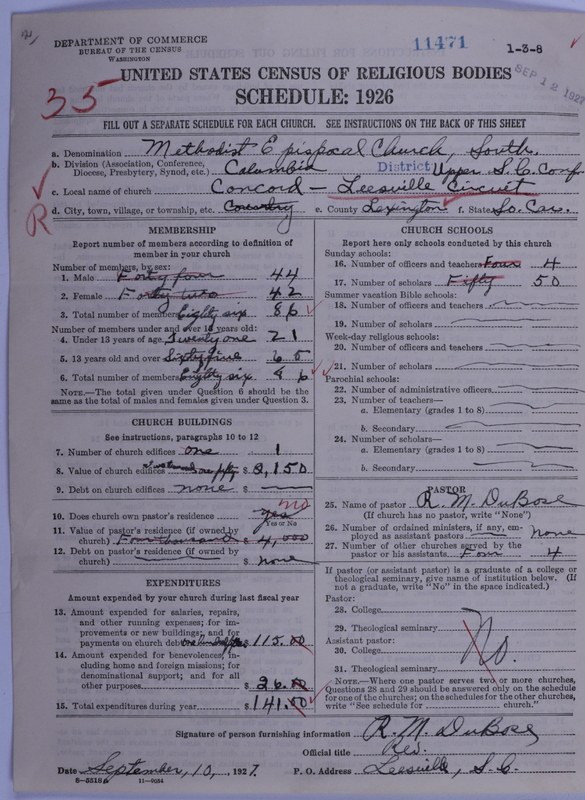 DEPARTMENT OF COMMERCE
BUREAU OF THE CENSUS
WASHINGTON
11471
1-3-8
SEP 12 1927
35
UNITED STATES CENSUS OF RELIGIOUS BODIES
SCHEDULE: 1926
FILL OUT A SEPARATE SCHEDULE FOR EACH CHURCH. SEE INSTRUCTIONS ON THE BACK OF THIS SHEET
a. Denomination Methodist Episcopal Church, South.
b. Division (Association, Conference, Diocese, Presbytery, Synod, etc.) Columbia District Upper S. C. Conf.
c. Local name of church Concord - Leesville Circuit
R
d. City, town, village, or township, etc. Country e. County Lexington f. State So. Car.
MEMBERSHIP
Report number of members according to definition of
member in your church
Number of members, by sex:
1. Male Forty four 44
2. Female Forty two 42
3. Total number of members Eighty six 86
Number of members under and over 13 years old:
4. Under 13 years of age Twenty one 21
5. 13 years old and over Sixty five 65
6. Total number of members Eighty six 86
NOTE.—The total given under Question 6 should be the
same as the total of males and females given under Question 3.
CHURCH BUILDINGS
See instructions, paragraphs 10 to 12
7. Number of church edifices one 1
8. Value of church edifices $ 2,150
9. Debt on church edifices none $
no
10. Does church own pastor's residence yes
Yes or No
11. Value of pastor's residence (if owned by
church) Four thousand $ 4,000
12. Debt on pastor's residence (if owned by
church) $ none
EXPENDITURES
Amount expended by your church during last fiscal year
13. Amount expended for salaries, repairs,
and other running expenses; for im-
provements or new buildings; and for
payments on church debt $ 115.00
14. Amount expended for benevolences, in-
cluding home and foreign missions; for
denominational support; and for all
other purposes $ 26.00
15. Total expenditures during year $ 141.00
CHURCH SCHOOLS
Report here only schools conducted by this church
Sunday schools:
16. Number of officers and teachers Four 4
17. Number of scholars Fifty 50
Summer vacation Bible schools:
18. Number of officers and teachers
19. Number of scholars
Week-day religious schools:
20. Number of officers and teachers
21. Number of scholars
Parochial schools:
22. Number of administrative officers
23. Number of teachers—
a. Elementary (grades 1 to 8)
b. Secondary
24. Number of scholars—
a. Elementary (grades 1 to 8)
b. Secondary
PASTOR
25. Name of pastor R. M. DuBose
(If church has no pastor, write "None")
26. Number of ordained ministers, if any, em-
ployed as assistant pastors none
27. Number of other churches served by the
pastor or his assistants Four 4
If pastor (or assistant pastor) is a graduate of a college or
theological seminary, give name of institution below. (If
not a graduate, write "No" in the space indicated.)
Pastor:
28. College
29. Theological seminary
No.
Assistant pastor:
30. College
31. Theological seminary
NOTE.—Where one pastor serves two or more churches,
Questions 28 and 29 should be answered only on the schedule
for one of the churches; on the schedules for the other churches,
write "See schedule for church."
Signature of person furnishing information R. M. DuBose
Official title Rev.
Date September, 10, 1927. P. O. Address Leesville, S. C.
11—9054